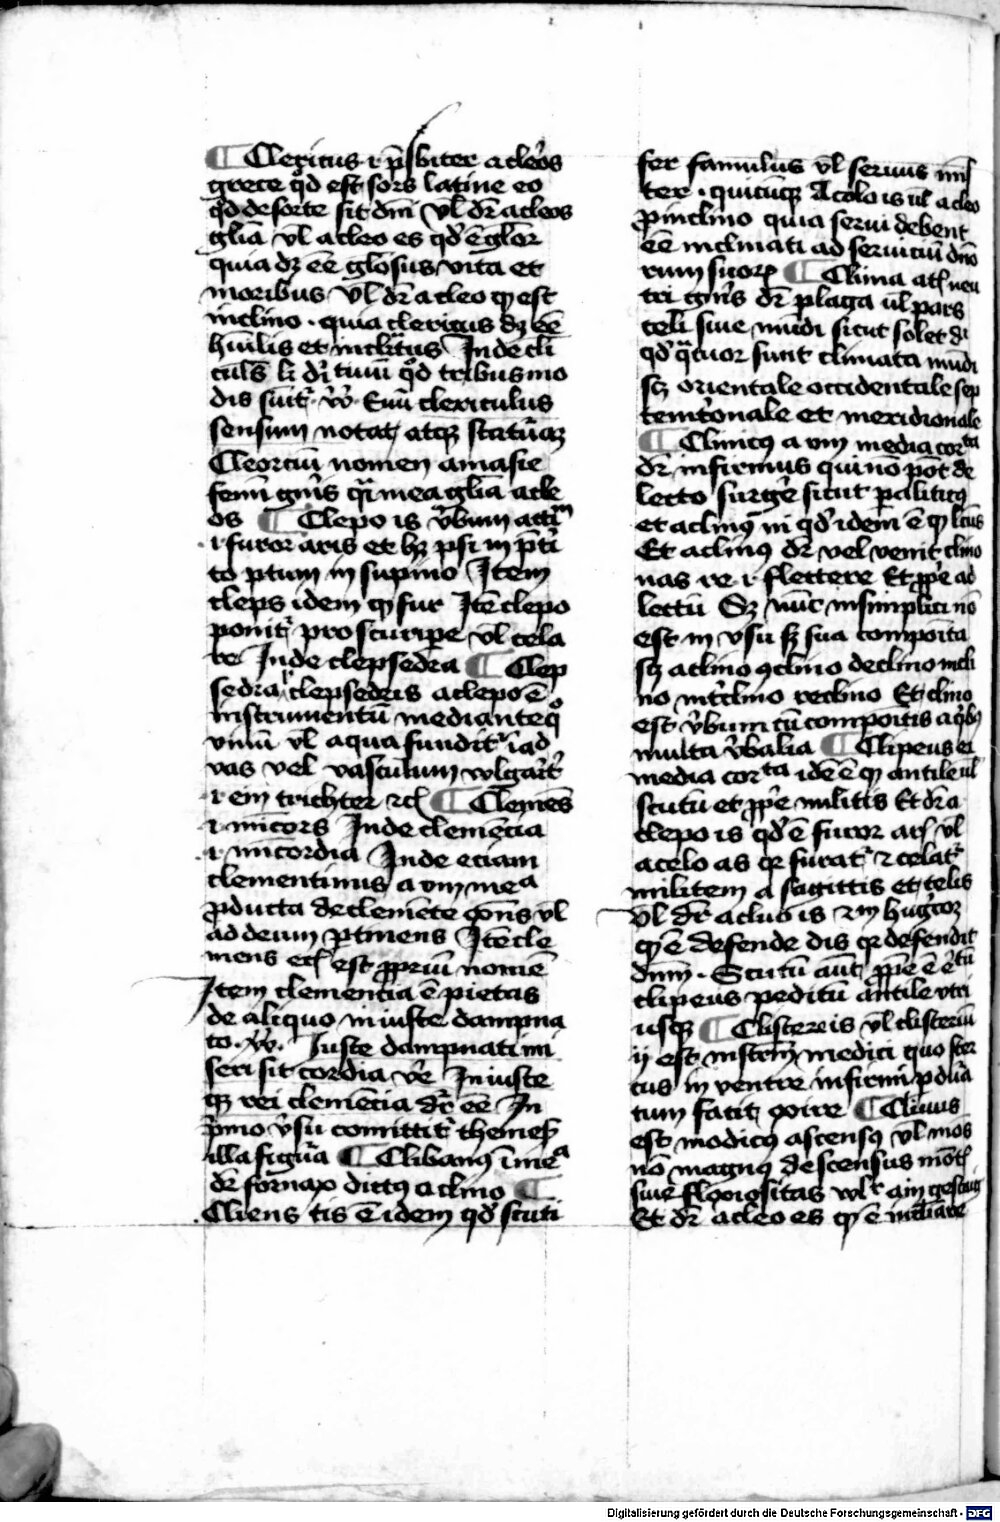 Clericus .i. p̄sbiter a cleros
grece qd̓ est sors latine eo
qd̓ de sorte sit dn̄i vl̄ dr̄ a cleos
glīa vl̄ a cleo es qd̓ ē glōr
quia dꝫ eē glōsus vita et
moribus vl̄ dr̄ a cleo qꝫ est
inclino . quia clericus dꝫ eē
hūilis et inclitus Inde cli
qd̓ tribus mo
dis clericulus
sensum notat atqꝫ statūaꝫ
Cleorciū nomen amasie
femī gn̄is qr̄ mea glīa a cle
os Clepo is v̓bum actiᵐ
.i. furor aris et hꝫ psi in p̄ti
to ptum in supino Item
cleps idem qꝫ fur Itē clepo
ponit᷑ pro scurripe vl̄ cela
re Inde clepsedra Clep
sedra l̓ clepsedris a clepo ē
instrumentū mediante qͦ
vinū vl̄ aqua fundit᷑ ī ad
vas vel vasculum wlgarit᷑
.i. ein trichter ꝛcꝉ Clemēs
.i. mīcors Inde clemēcia
.i. mīcordia Inde eciam
clementinus a um meᵃ
ꝓducta de clemēte ꝯōns vl̄
ad deum ꝑtinens Itē cle
mens ecꝉ est ꝓpriū nomē
Item clementia ē pietas
de aliquo iniuste dampna
to . ꝟ. Iuste dampnati mi
seri sit cordia v̄e Iniuste
qꝫ rei clemēcia dr̄ eē In
p̓mo v̓su comittit᷑ themesꝭ
illa figūa Clibanꝰ ī meᵃ
dr̄ fornax dictꝰ a clino
Cliens tis ē idem qd̓ scuti
fer famulus vl̄ seruus mī
ster . quicūqꝫ A colo is ul̄ a cleo
ꝓ inclino quia serui debent
eē inclinati ad seruiciū dn̄o
rum suoꝝ Clima atꝭ neu
tri gn̄is dr̄ plaga ul̄ pars
celi siue mūdi sicut solet di
qd̓ q̄tuor sunt climata mūdi
sꝫ orientale occidentale sep
temt̓onale et meridionale
Clinicꝰ a um media corᵗᵃ
dr̄ infirmus qui nō pōt de
lecto surge̓ sicut paliticꝰ
et aclinꝰ ni qd̓ idem ē qꝫ lc̄us
Et aclinꝰ dr̄ vel venit clino
nas re .i. flectere Et ꝓpe̓ ad
lectū Sꝫ nūc insimplici nō
est in vsu sꝫ sua compoita
sꝫ aclino ꝯclino declino incli
no int̓clino reclino Et clino
est v̓bum cū compoitis a qͦbꝰ
multa v̓balia Clipeus ei
media corᵗᵃ idē ē qꝫ antile ul̄
scutū et ꝓpe̓ militis Et dr̄ a
clepo is qd̓ ē furor arꝭ vl̄
a celo as qr̄ furat᷑ ⁊ celat᷑
militem a sagittis et telis
vl̄ dr̄ a cluo is ⁊m hug̓coꝫ
qꝫ ē defende dis qr̄ defendit
dn̄m . Scutū aūt ꝓpie̓ ē
clipeus peditū antile vtri
usqꝫ Clistere is vl̄ clisteriū
ij est instrm̄ medici quo ster
cus in ventre infirmi ꝑdūa
tum facit exire Cliuus
est modicꝰ ascensꝰ vl̄ mōs
nō magnꝰ descensus mōtꝭ
siue flexiositas wlᵉ
Et dr̄ a cleo es qꝫ ē inclīare
Digitalisierung gefördert durch die Deutsche Forschungsgemeinschaft - DFG